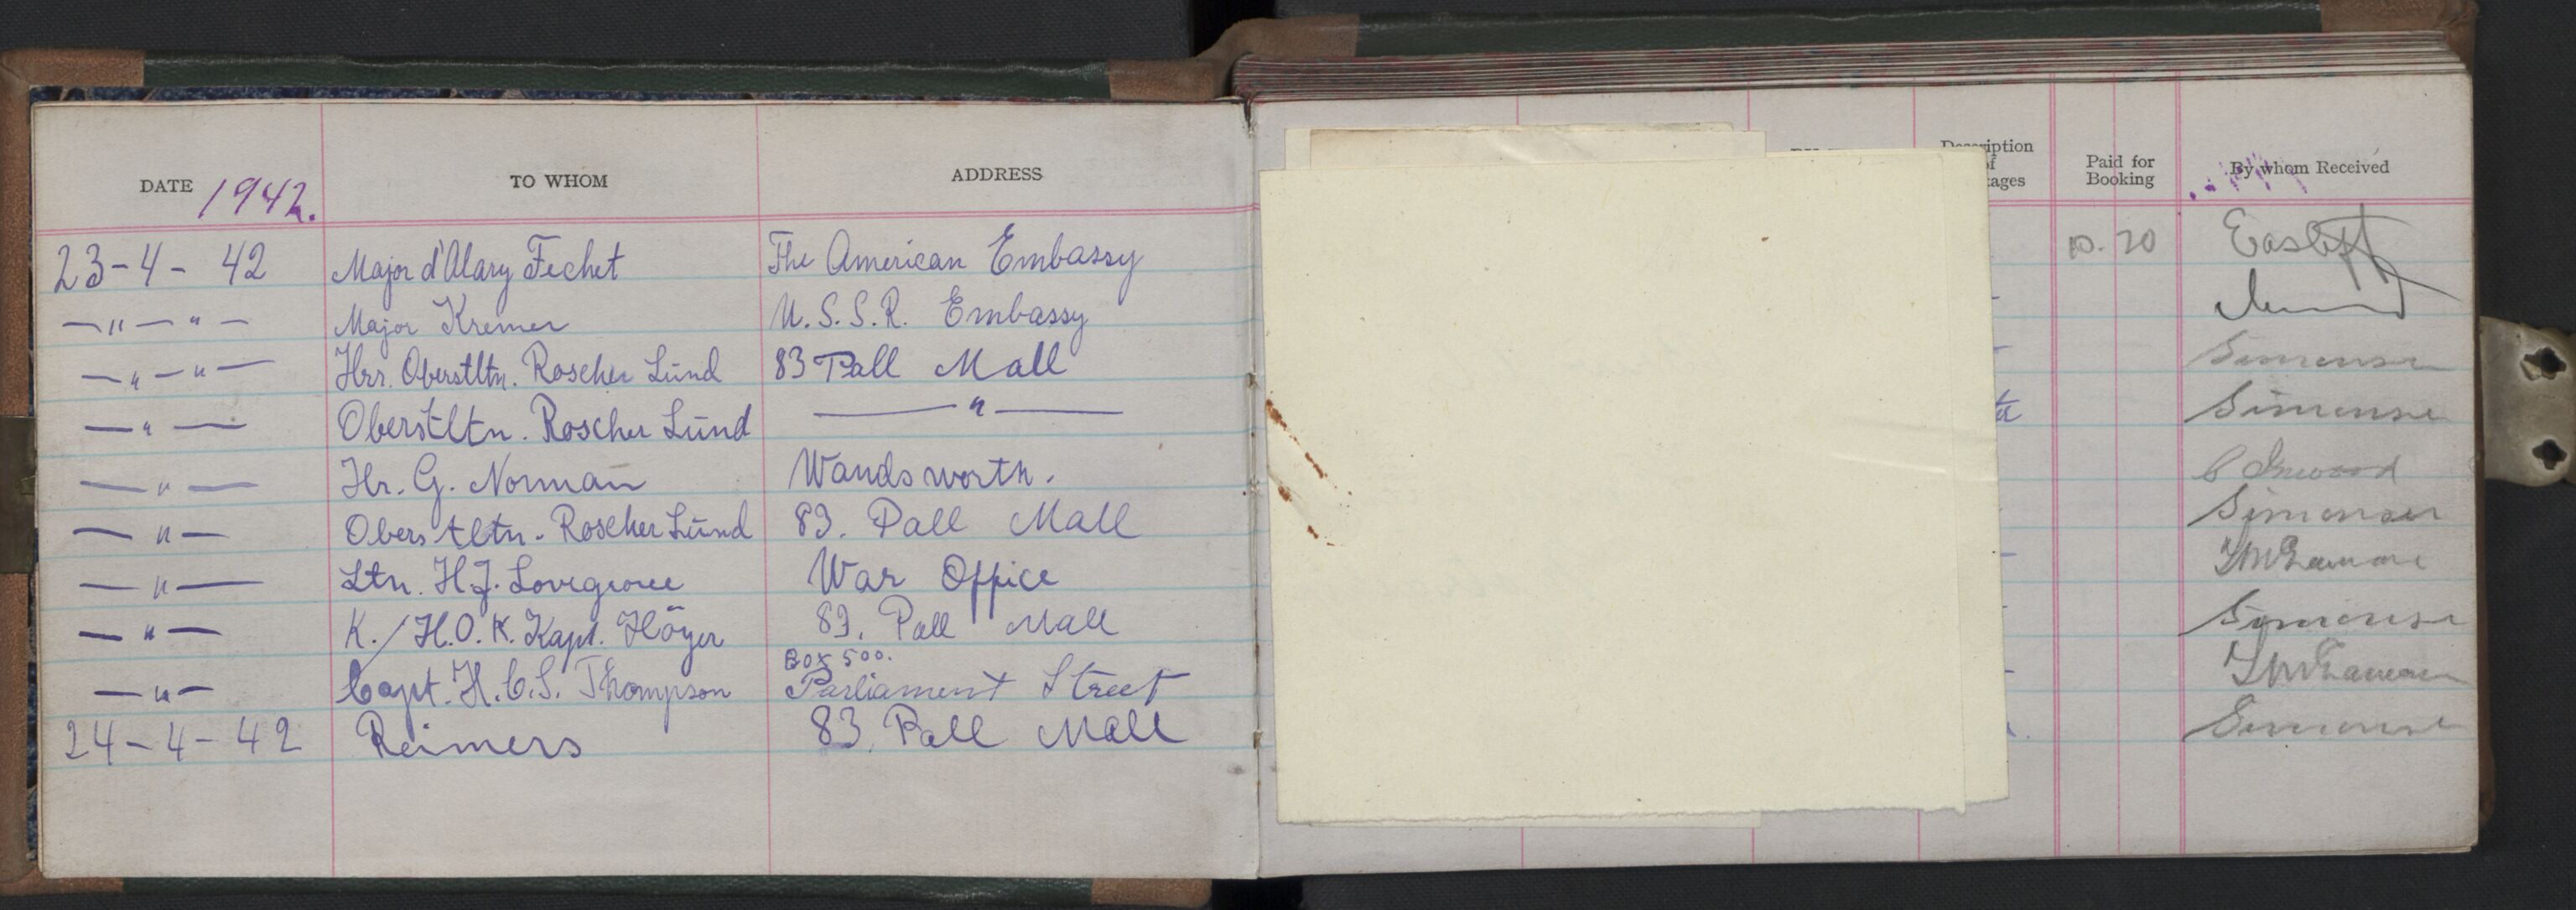 DATE 1942. TO WHOM ADDRESS
Description of Paid for Booking By whom Received
23-4-42 Major d'Alary Fechet The American Embassy 10.20
— " — " — Major Kremer U.S.S.R. Embassy
— " — " — Hrr. Oberstltn. Roscher Lund 83 Pall Mall Simonsen
— " — Oberstltn. Roscher Lund — " — Simonsen
— " — Hr. G. Norman Wandsworth.
— " — Oberstltn. Roscher Lund 83. Pall Mall Simonsen
— " — Ltn. H.J. Lovegrove War Office
— " — K./H.O.K. Kapt. Höyer 83. Pall Mall Simonsen
— " — Capt. H.C.S. Thompson Box 500. Parliament Street
24-4-42 Reimers 83. Pall Mall Simonsen